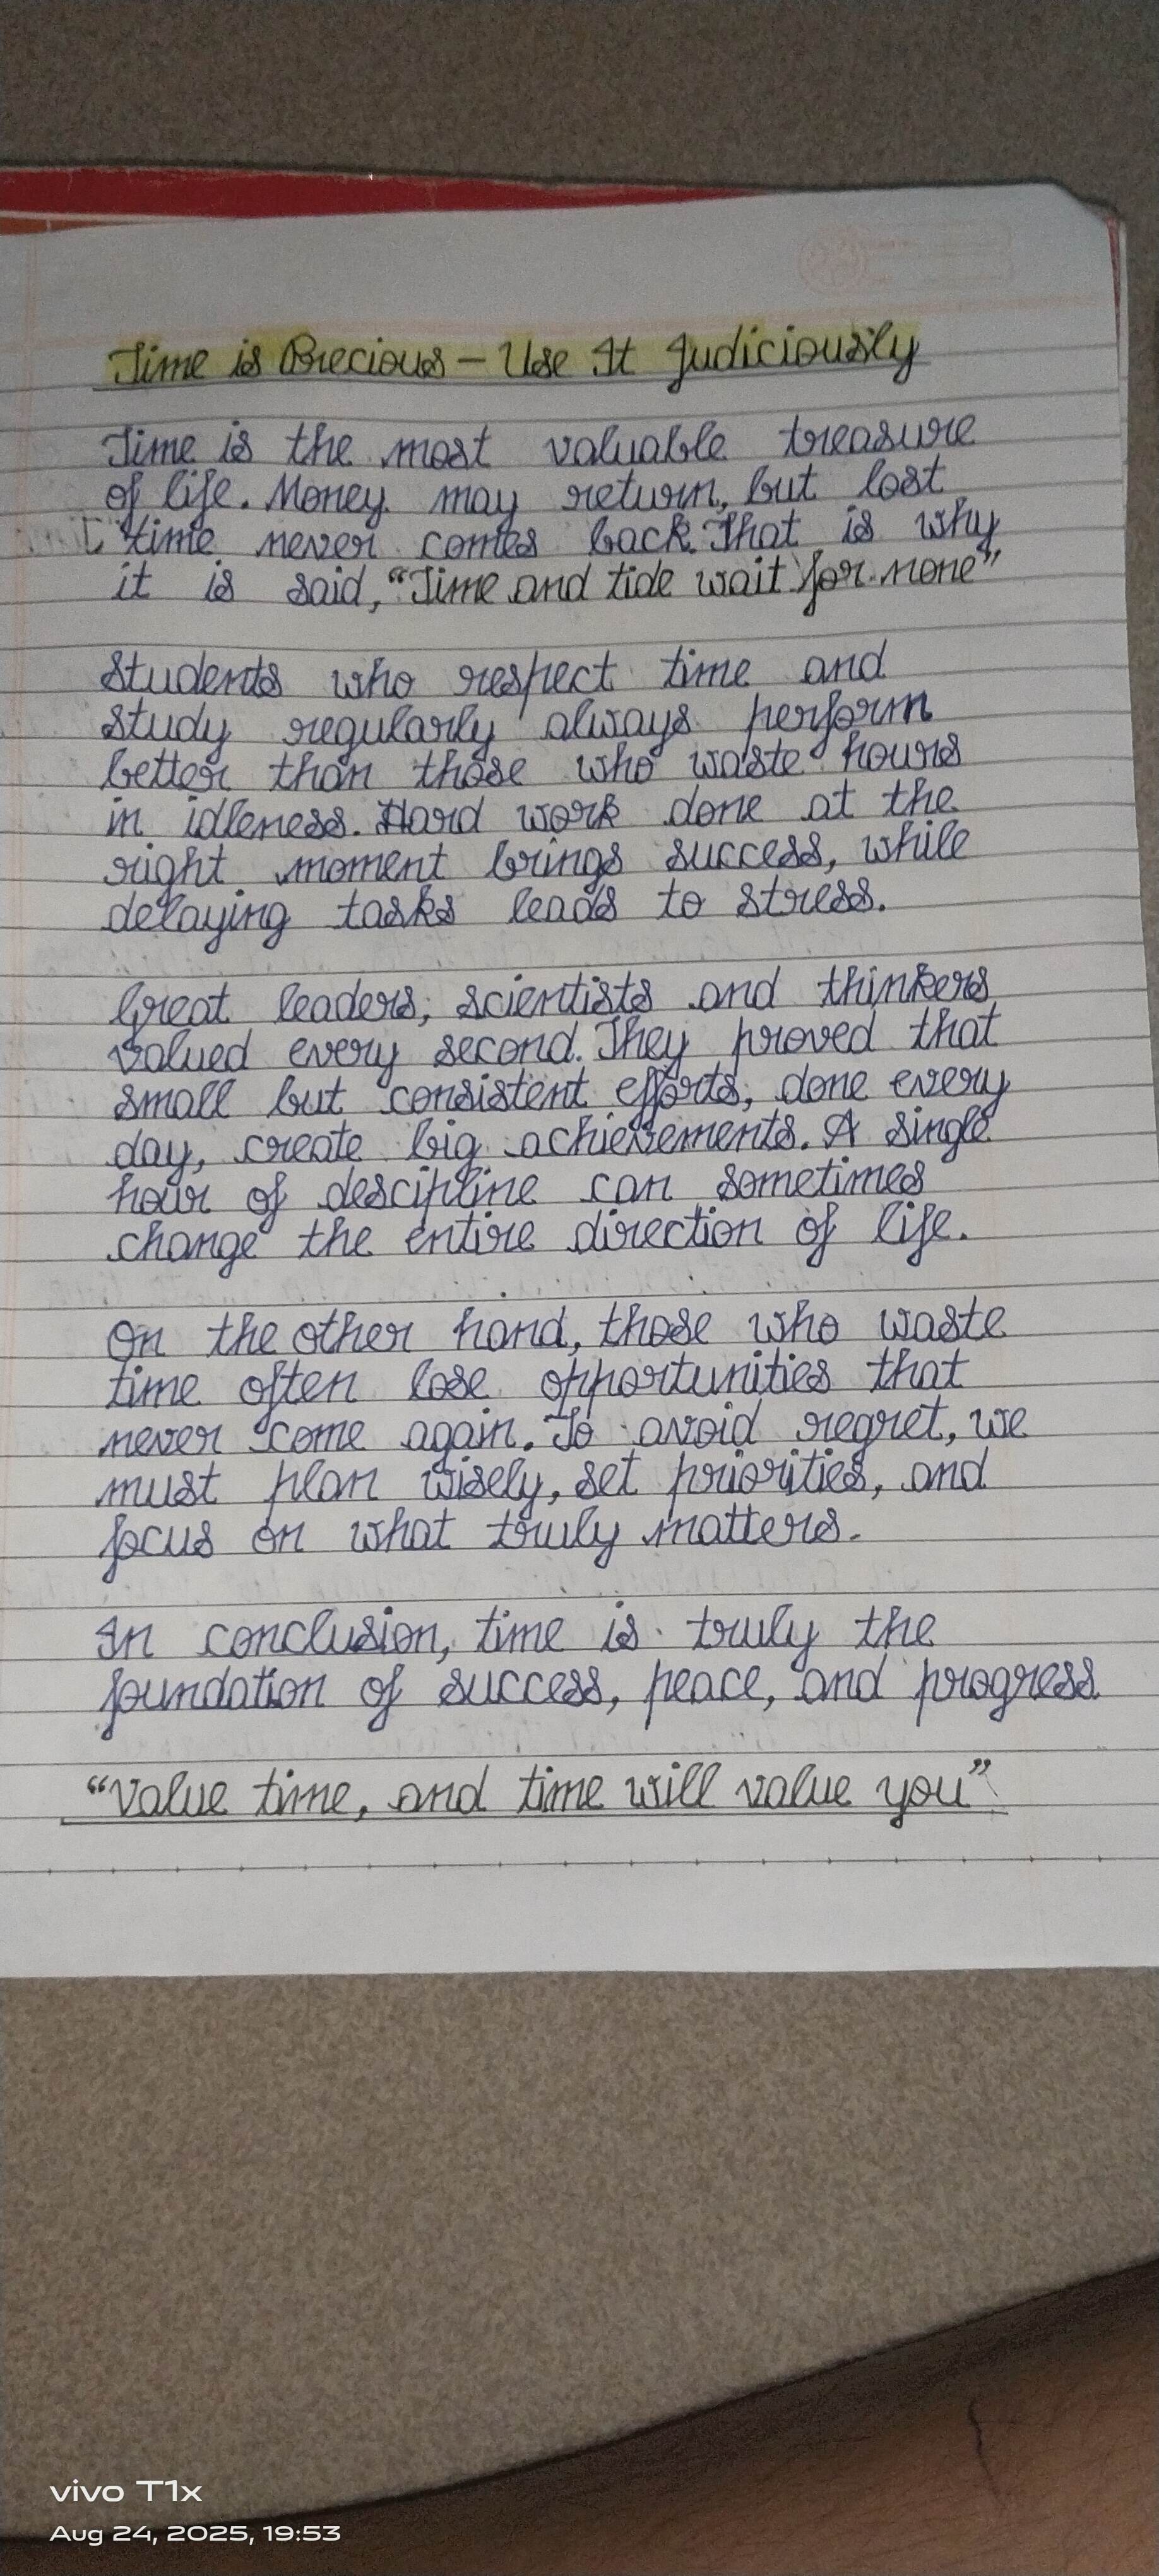 Time is Precious – Use It Judiciously
Time is the most valuable treasure
of life. Money may return, but lost
time never comes back. That is why
it is said, “Time and tide wait for none”
Students who respect time and
study regularly always perform
better than those who waste hours
in idleness. Hard work done at the
right moment brings success, while
delaying tasks leads to stress.
Great leaders, scientists and thinkers
valued every second. They proved that
small but consistent efforts, done every
day, create big achievements. A single
hour of descipline can sometimes
change the entire direction of life.
On the other hand, those who waste
time often lose opportunities that
never come again. To avoid regret, we
must plan wisely, set priorities, and
focus on what truly matters.
In conclusion, time is truly the
foundation of success, peace, and progress
“Value time, and time will value you”
vivo T1x
Aug 24, 2025, 19:53